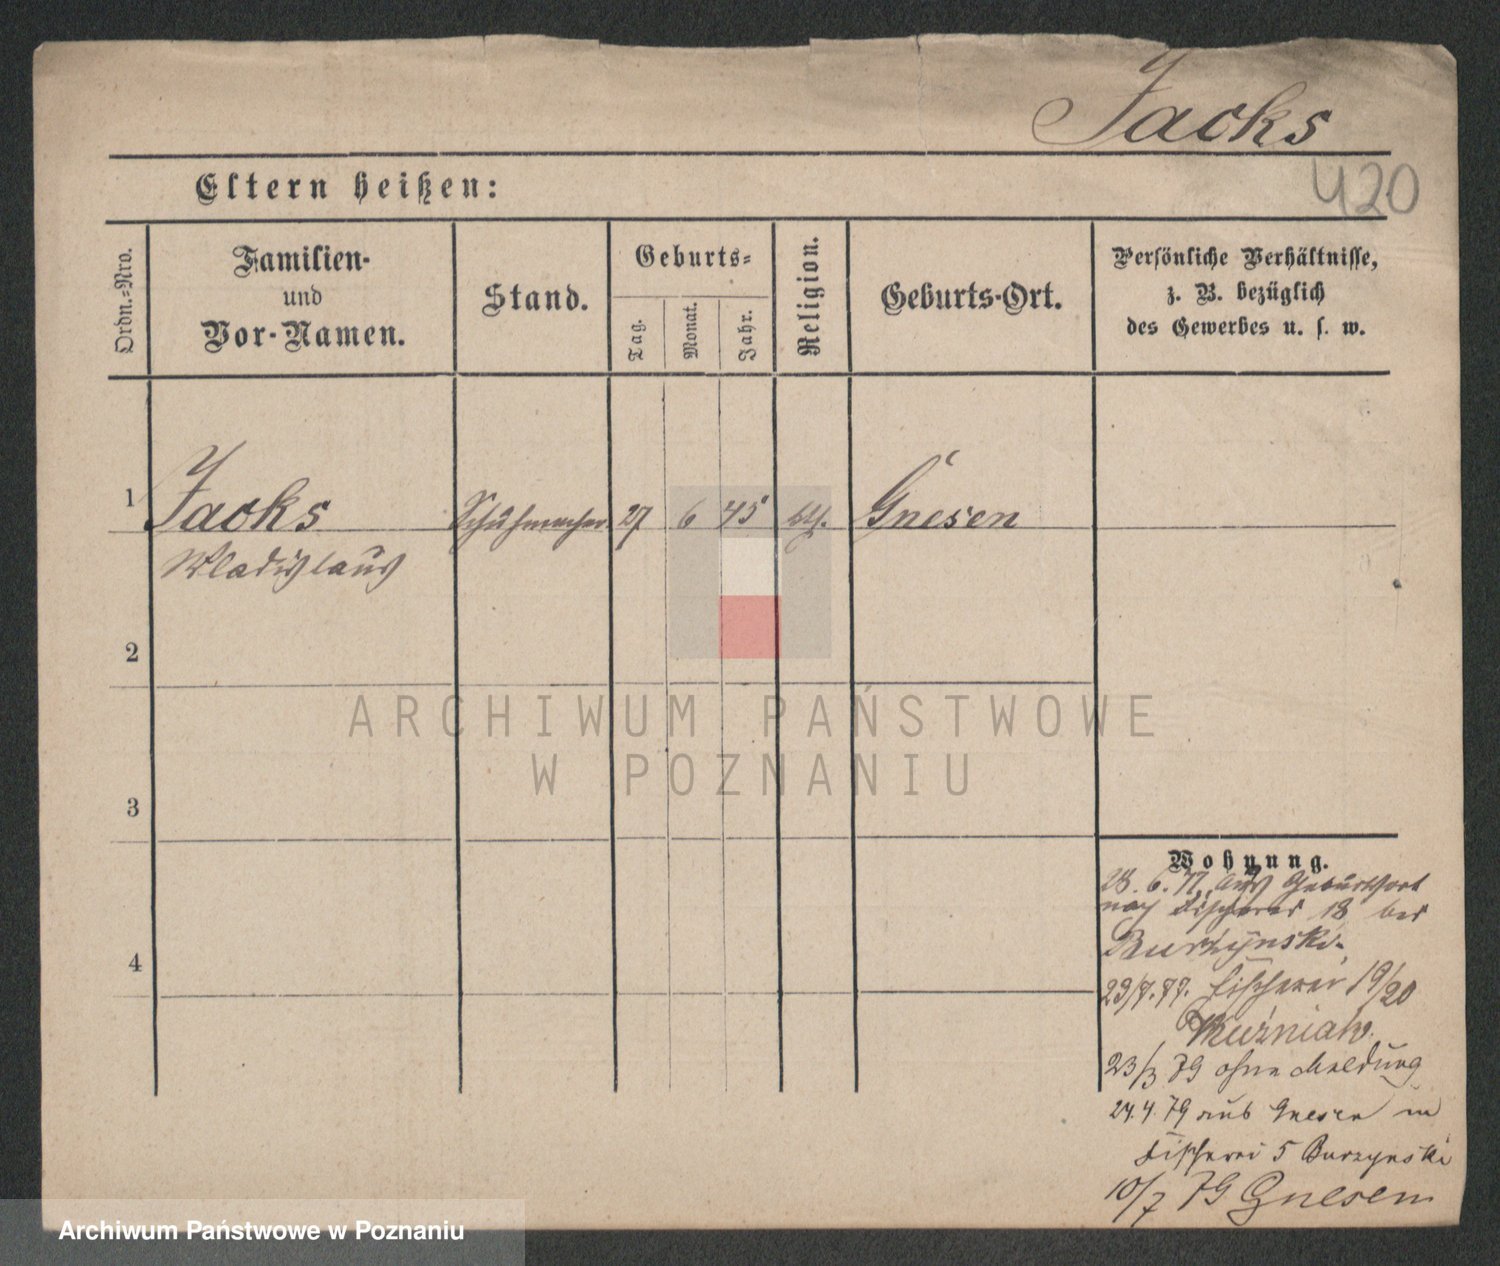 Jacks
420
Eltern heißen:
Ordn.-Nro.
Familien-
und
Vor-Namen.
Stand.
Geburts-
Tag.
Monat.
Jahr.
Religion.
Geburts-Ort.
Persönliche Verhältnisse,
z. B. bezüglich
des Gewerbes u. s. w.
1
Jacks
Schuhmacher
27
6
45
Gnesen
Wladislaus
2
3
4
ARCHIWUM PAŃSTWOWE
W POZNANIU
Wohnung.
28. 6. 77 aus Geburtsort
nach Fischerei 18 bei
Burzynski.
Fischerei 19/20
Kuźniak.
23/3 79 ohne Meldung
24.4.79 aus Gnesen in
Fischerei 5 Burzynski
10/7 79 Gnesen
Archiwum Państwowe w Poznaniu